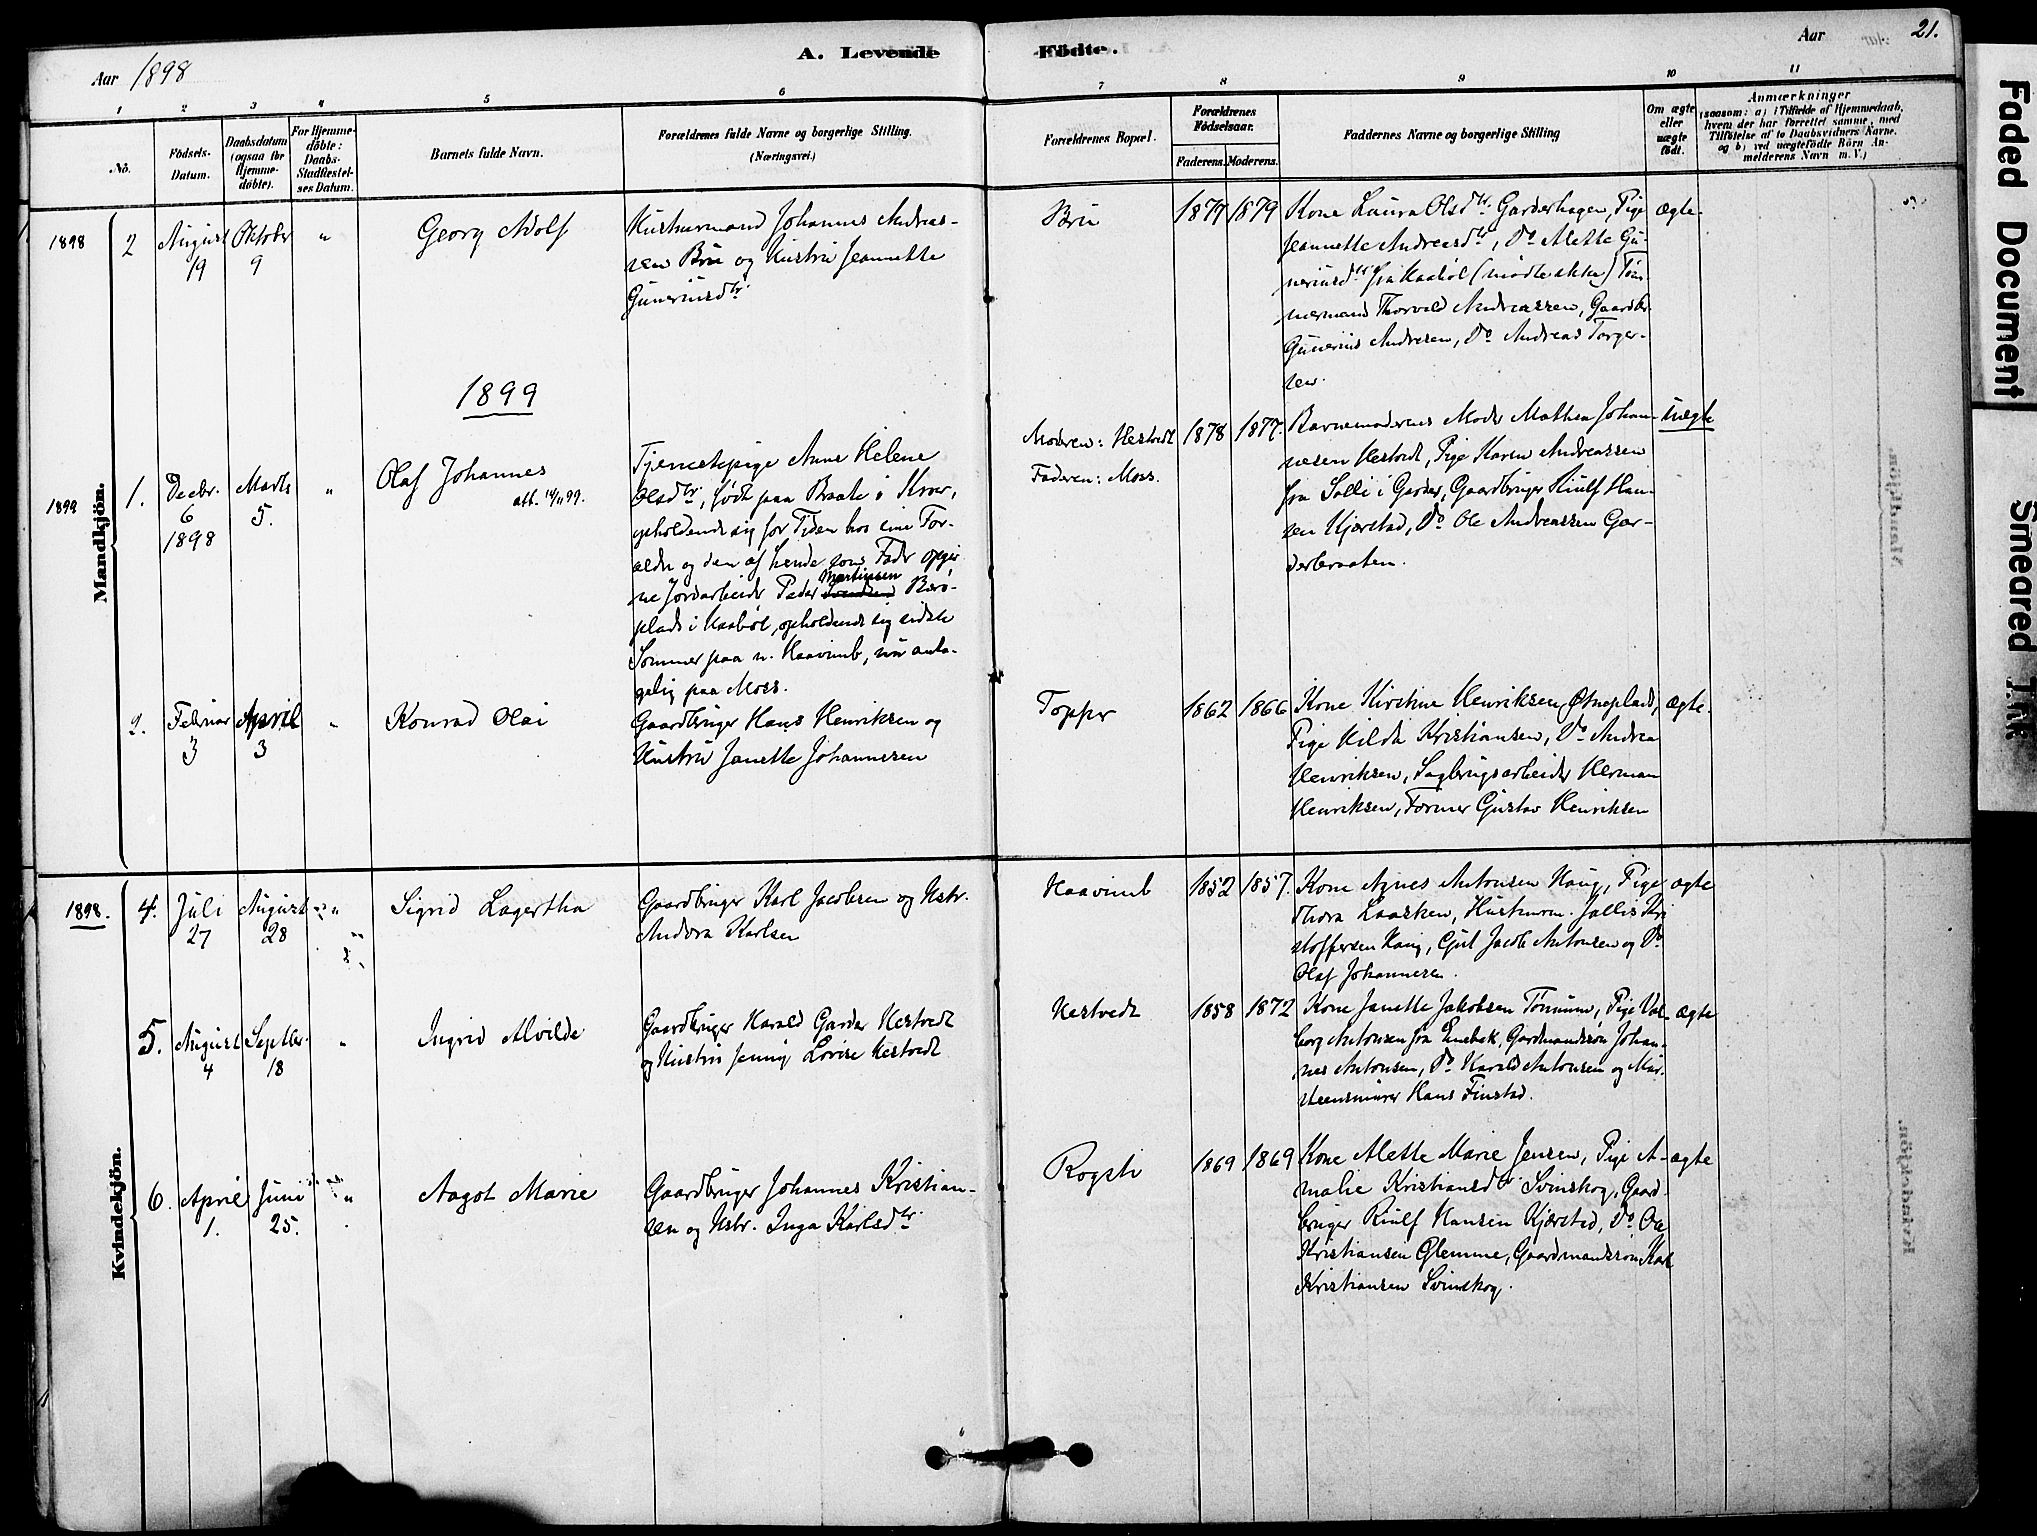 21.
Aar 1898
A. Levende Födte.
Aar
1
2
3
4
5
6
7
8
9
10
11
No.
Födsels-Datum.
Daabsdatum (ogsaa for Hjemme-döbte).
For Hjemme-döbte: Daabs-Stadfæstel-ses Datum.
Barnets fulde Navn.
Forældrenes fulde Navne og borgerlige Stilling. (Næringsvei.)
Forældrenes Bopæl.
Forældrenes Födselsaar.
Faderens. Moderens.
Faddernes Navne og borgerlige Stilling
Om ægte eller uægte födt.
Anmærkninger
(saasom: a) i Tilfælde af Hjemmedaab,
hvem der har forrettet samme, med
Tilföielse af to Daabsvidners Navne.
og b) ved uægtefödte Börn An-
melderens Navn m. V.)
Mandkjön.
1898
2
August 19
Oktober 9
"
Georg Adolf
Husmand Johannes Andreas-
sen Bru og Hustru Jeannette
Guneriusdtr
Bru
1877
1879
Kone Laura Olsdtr Garderhagen, Pige
Jeannette Andreasdtr, Do Alette Gu-
neriusdtr fra Haabøl (mødte ikke) Tøm-
mermand Thorvald Andreassen, Gaardbr.
Gunerius Andresen, Do Andreas Torger-
sen.
ægte.
1899
1899
1.
Decbr. 6 1898
Marts 5.
"
Olaf Johannes
att. 14/11 99.
Tjenestepige Anne Helene
Olsdtr, født paa Braate i Kroer,
opholdende sig for Tiden hos sine For-
ældre og den af hende som Fader opgiv-
ne Jordarbeider Peder Martinsen Berø-
plads i Haabøl, opholdende sig sidste
Sommer paa n. Haavimb, nu anta-
gelig paa Moss.
Moderen: Hestvedt
Faderen: Moss.
1878
1877.
Barnemoderens Moder Mathea Johan-
nesen Hestvedt, Pige Karen Andreassen
fra Solli i Garder, Gaardbruger Riulf Han-
sen Kjærstad, Do Ole Andreassen Gar-
derbraaten.
uægte
2.
Februar 3
April 3
"
Konrad Olai
Gaardbruger Hans Henriksen og
Hustru Janette Johannessen
Topper
1862
1866
Kone Kirstine Henriksen, Østneplads,
Pige Hilda Kristiansen, Do Andrea
Henriksen, Sagbrugsarbeider Herman
Henriksen, Former Gustav Henriksen
ægte.
Kvindekjön.
1898.
4.
Juli 27
August 28
"
Sigrid Lagertha
Gaardbruger Karl Jacobsen og Hstr.
Andora Karlsen
Haavimb
1852
1857.
Kone Agnes Antonsen Haug, Pige
Thora Laasken, Husmm. Jallis Kri
stoffersen Haug, Gjut Jacob Antonsen og Do
Olaf Johannesen.
ægte
5.
August 4
Septbr. 18
"
Ingrid Alvilde
Gaardbruger Harald Garder Hestvedt
og Hustru Jenny Lovise Hestvedt
Hestvedt
1858
1872
Kone Janette Jakobsen Tomum, Pige Val-
borg Antonsen fra Enebak, Gardmandssøn Johan-
nes Antonsen, Do Harald Antonsen og Mur-
steensmurer Hans Finstad.
ægte
6.
April 1.
Juni 25.
"
Aagot Marie
Gaardbruger Johannes Kristian-
sen og Hstr. Inga Karlsdtr
Rogsti
1869
1869
Kone Alette Marie Jensen, Pige A-
malie Kristiansdtr Svinskog, Gaard-
bruger Riulf Hansen Kjærstad, Do Ole
Kristiansen Glemme, Gaardmandssøn Karl
Kristiansen Svinskog.
ægte
Faded Document
Smeared Ink